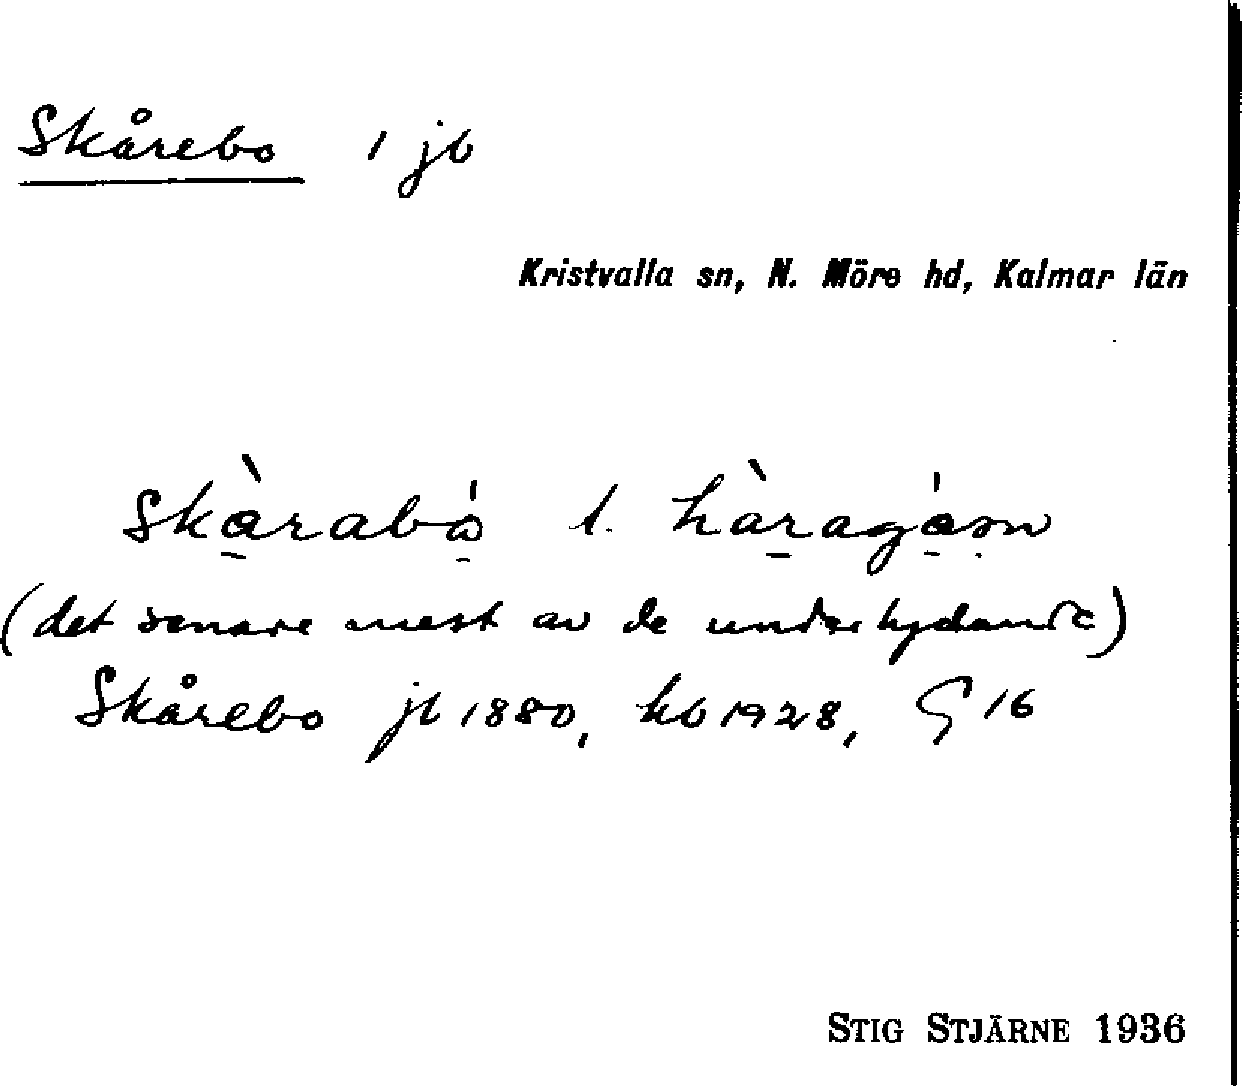 Skårebo 1 jb
Kristvalla sn, N. Möre hd, Kalmar län
skàrabó l. hàragásn
(det senare mest av de underlydande)
Skårebo jb 1880, kb 1928, G 16
STIG STJÄRNE 1936